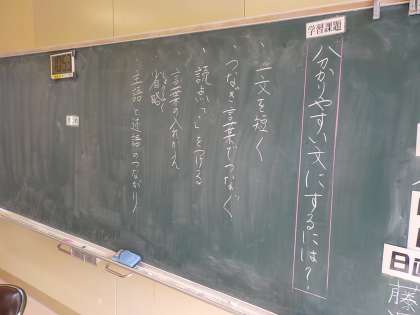 学習課題
分かりやすい文にするには？
・一文を短く
・つなぎ言葉でつなぐ
・読点「、」をつける
・言葉の入れかえ
・省略
・主語と述語のつながり
日直